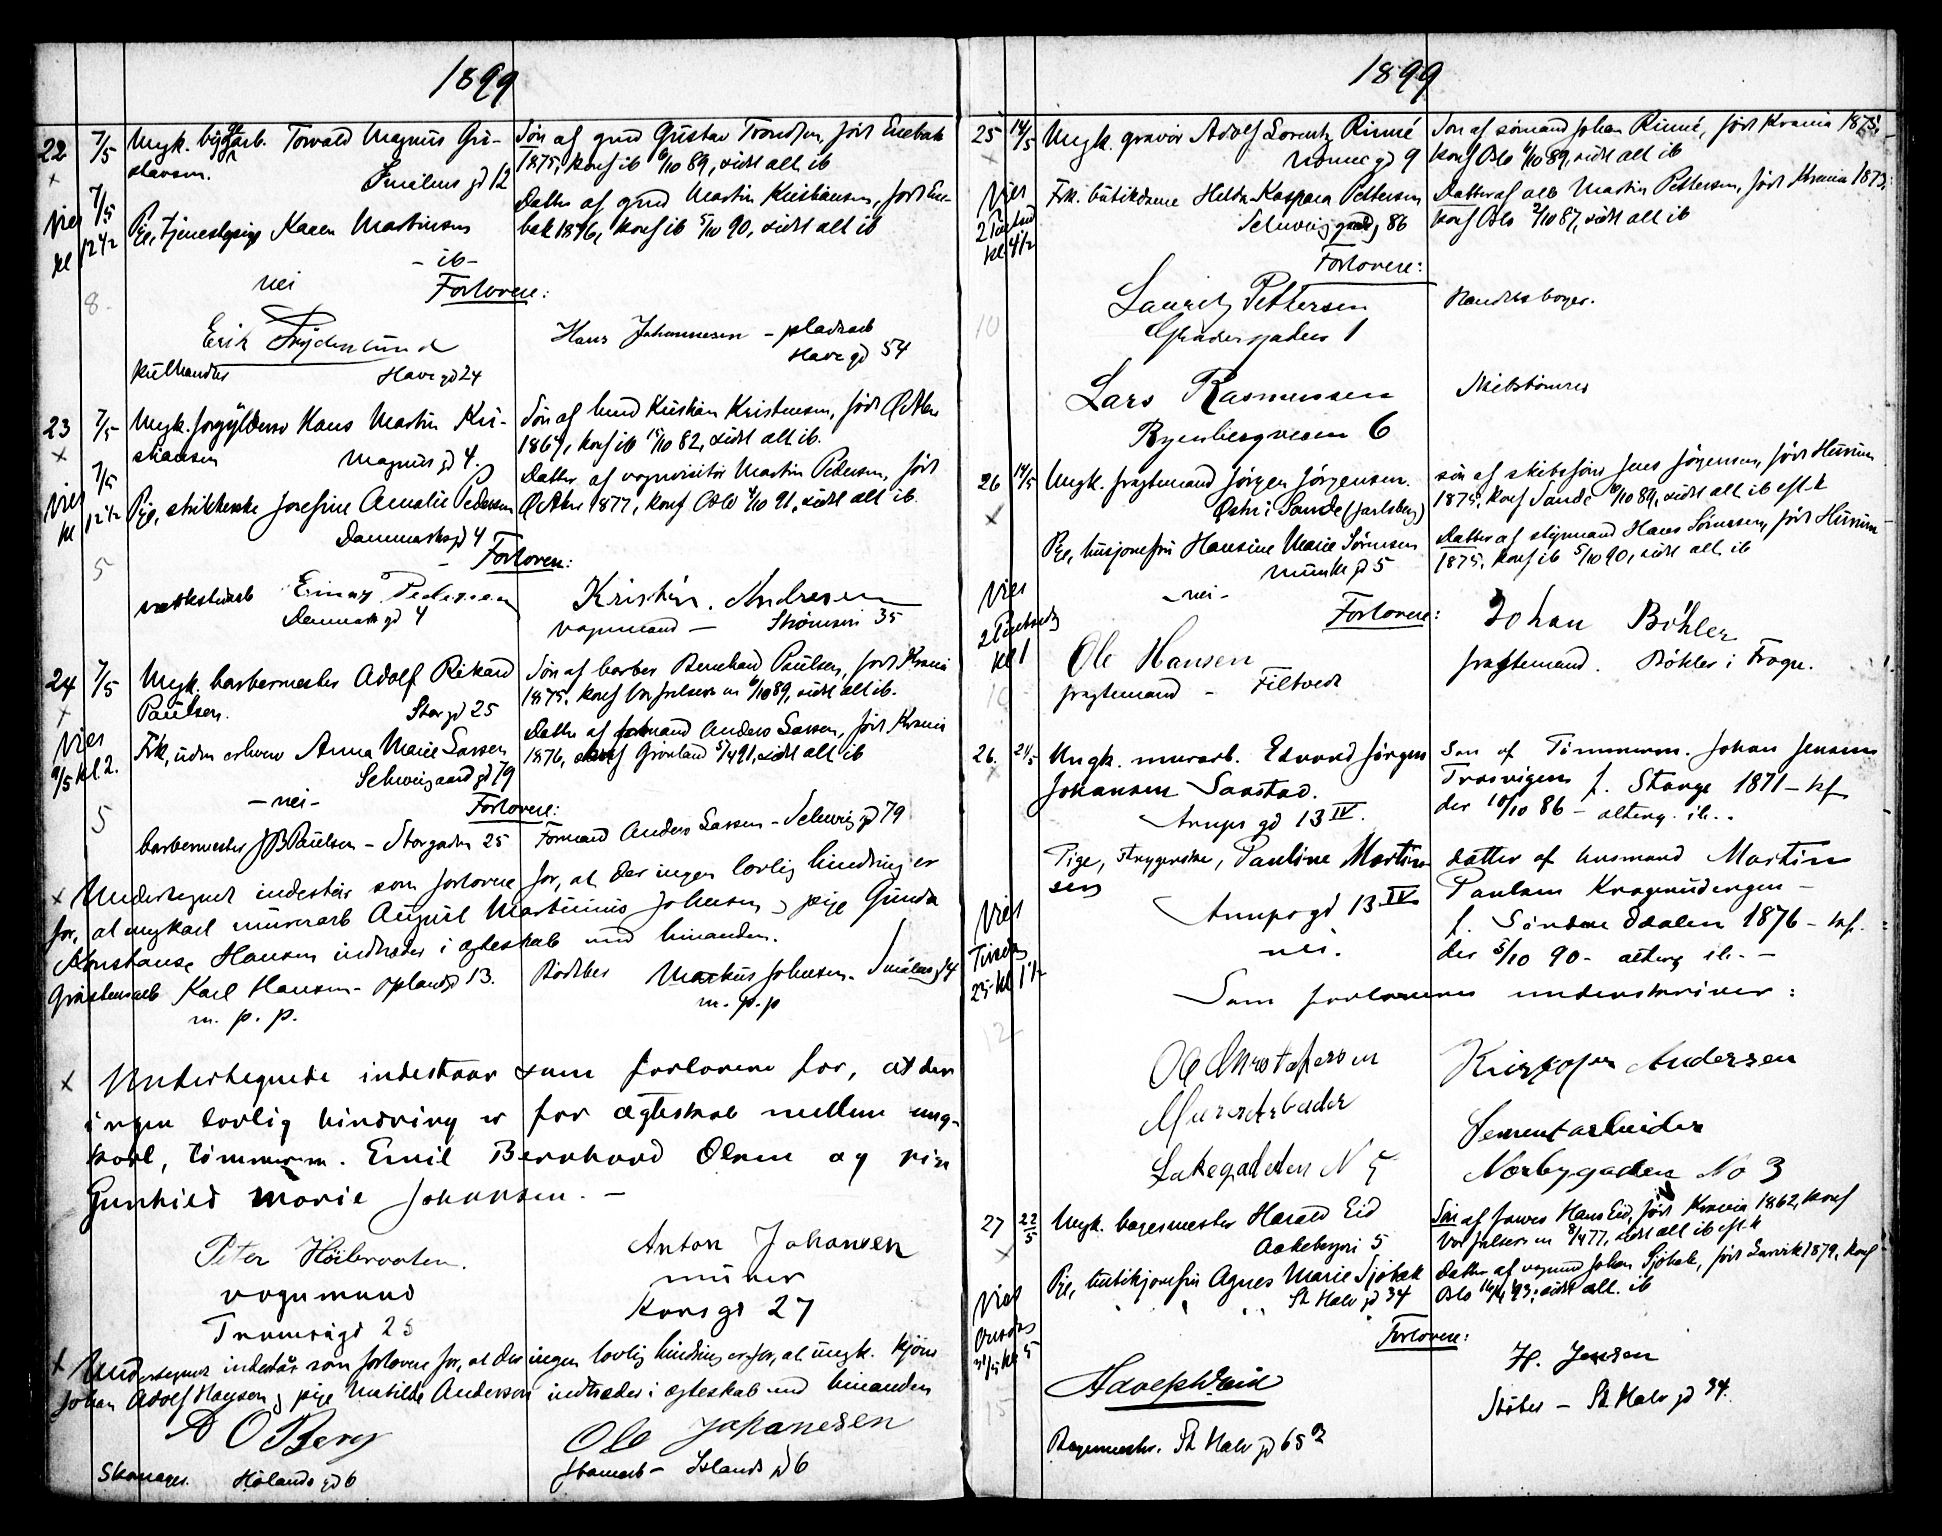 1899
22 7/5 Ungk. bygarb. Torvald Magnus Gu-
stavsen. Smålens gd 12
Søn af gmd Gustav Trondsen, født Enebak
1875, konf ib 6/10 89, sidst alt ib
Vies 7/5 kl 12 1/2
Pge, tjenestepige Karen Martinsen
- ib -
Datter af gmd Martin Kristiansen, født Ene-
bak 1876, konf ib 5/10 90, sidst alt ib
nei
Forlovere:
8.
Erik Frydenlund
kulhandler Havegd 24
Hans Johannesen - pladsarb
Havegd 54
23 7/5 Ungk. forgylder Hans Martin Kri-
stiansen Magnus gd 4.
Søn af Kristian Kristensen, født Ø Aker
1867, konf ib 15/10 82, sidst alt ib.
Vies 7/5 kl 12 1/2
Pge, Josefine Amalie Pedersen
Danmarks gd 4
Datter af vognvisitør Martin Pedersen, født
Ø Aker 1877, konf Oslo 4/10 91, sidst alt ib.
5
Forlovere:
verkstedarb Einar Pedersen
Danmarks gd 4
Kristin. Andresen
vognmand - Strømsvn 35
24 7/5 Ungk. barbermester Adolf Rikard
Paulsen. Storgd 25
Søn af barber Bernhard Paulsen, født Krania
1875, konf Vor frelsers m 6/10 89, sidst alt ib.
Vies 9/5 kl 2.
Frk, uden erhverv Anna Marie Larsen
Schweigaard gd 79
Datter af formand Anders Larsen, født Krania
1876, konf Grønland 5/4 91, sidst alt ib
- nei -
Forlovere:
5
barbermester J B Paulsen - Storgaden 25
Formand Anders Larsen - Schweig gd 79
x Undertegnet indestår som forlovere for, at der ingen lovlig hindring er
for, at ungkarl murerarb August Martinius Johnsen og pige Gunda
Konstanse Hansen indtræder i ægteskab med hinanden.
Karl Hansen - Oplandgd 13.
m. p. p.
Bødker Markus Johnsen. Smålensgd 14
m. p. p
x Undertegnede indestaar som forlovere for, at der
ingen lovlig hindring er for ægteskab mellem ung-
karl, tømmerm. Emil Bernhard Olsen og pige
Gunhild Marie Johansen. -
Peter Høibraaten.
vognmand
Tromsøgd 25
Anton Johansen
murer
Korsgd 27
x Undertegnet indestår som forlovere for, at der ingen lovlig hindring er for, at ungk. kjører
Johan Adolf Hansen og pige Matilde Andersen indtræder i ægteskab med hinanden
O Berg
Skomager. Hølands gd 6
Ole Johanesen
Islands gd 6
1899
25 14/5 Ungk. gravør Adolf Lorentz Rinné
gd 9
Søn af sømand Johan Rinné, født Krania 1875,
konf Oslo 6/10 89, sidst alt ib
Vies 2 Pintsed kl 4 1/2
Frk. butikdame Helda Kaspara Pettersen
Schweig gd 86
Datter af arb Martin Pettersen, født Krania 1873,
konf Oslo 2/10 87, sidst alt ib
Forlovere:
10
Lauritz Pettersen
Grændsegaden 1
Handelsboger.
Lars Rasmussen
Ryenbergveien 6
Skibstømrer
26 14/5 Ungk. fragtemand Jørgen Jørgensen.
Østre i Sande (Jarlsberg)
søn af skibsfører Jens Jørgensen, født Hurum
1875, konf Sande 6/10 89, sidst alt ib efl-k
Pge, husjomfru Hansine Marie Sørensen
Munke gd 5
Datter af styrmand Hans Sørensen, født Hurum
1875, konf ib 5/10 90, sidst alt ib
Vies 2 Pintsedg kl 1
- nei -
Forlovere:
10
Ole Hansen
fragtemand - Filtvedt
Johan Böhler
fragtemand. Bøhler i Frogn.
26. 21/5 Ungk. murarb. Edvard Jørgen
Johansen Saastad.
Arups gd 13 IV.
Søn af Tømmerm. Johan Jensen
Trosvigen f. Stange 1871 - kf
der 10/10 86 - alterg. ib..
Pige, strygerske, Pauline Martin
sen
Arups gd 13 IV
nei.
datter af husmand Martin
Paulsen Kragerudengen -
f. Søndre Odalen 1876 - kf.
der 5/10 90 - alterg ib. -
Vies Tirsdag 23 - kl 1 1/2
Som forlovere underskriver:
12
Ole Christofersen
Murerarbeider
Lakegadeden N 5
Kristofer Andersen
Sementarbeider
Norbygaden No 3
27 22/5 Ungk. bagermester Harald Eid
Aakebergvn 5
Søn af Hans Eid, født Krania 1862, konf
Vor frelsers m 8/4 77, sidst alt ib efl-k
Pge, butikjomfru Agnes Marie Sjøbak
St Halv gd 34
Datter af vognmd Johan Sjøbak, født Larvik 1879, konf
Oslo 93, sidst alt. ib
Vies Onsdag 31/5 kl 5
Forlovere:
15
Adolph Eid
Bagermester. St Halv gd 65 2
H. Jensen
Støber - St Halv gd 34.